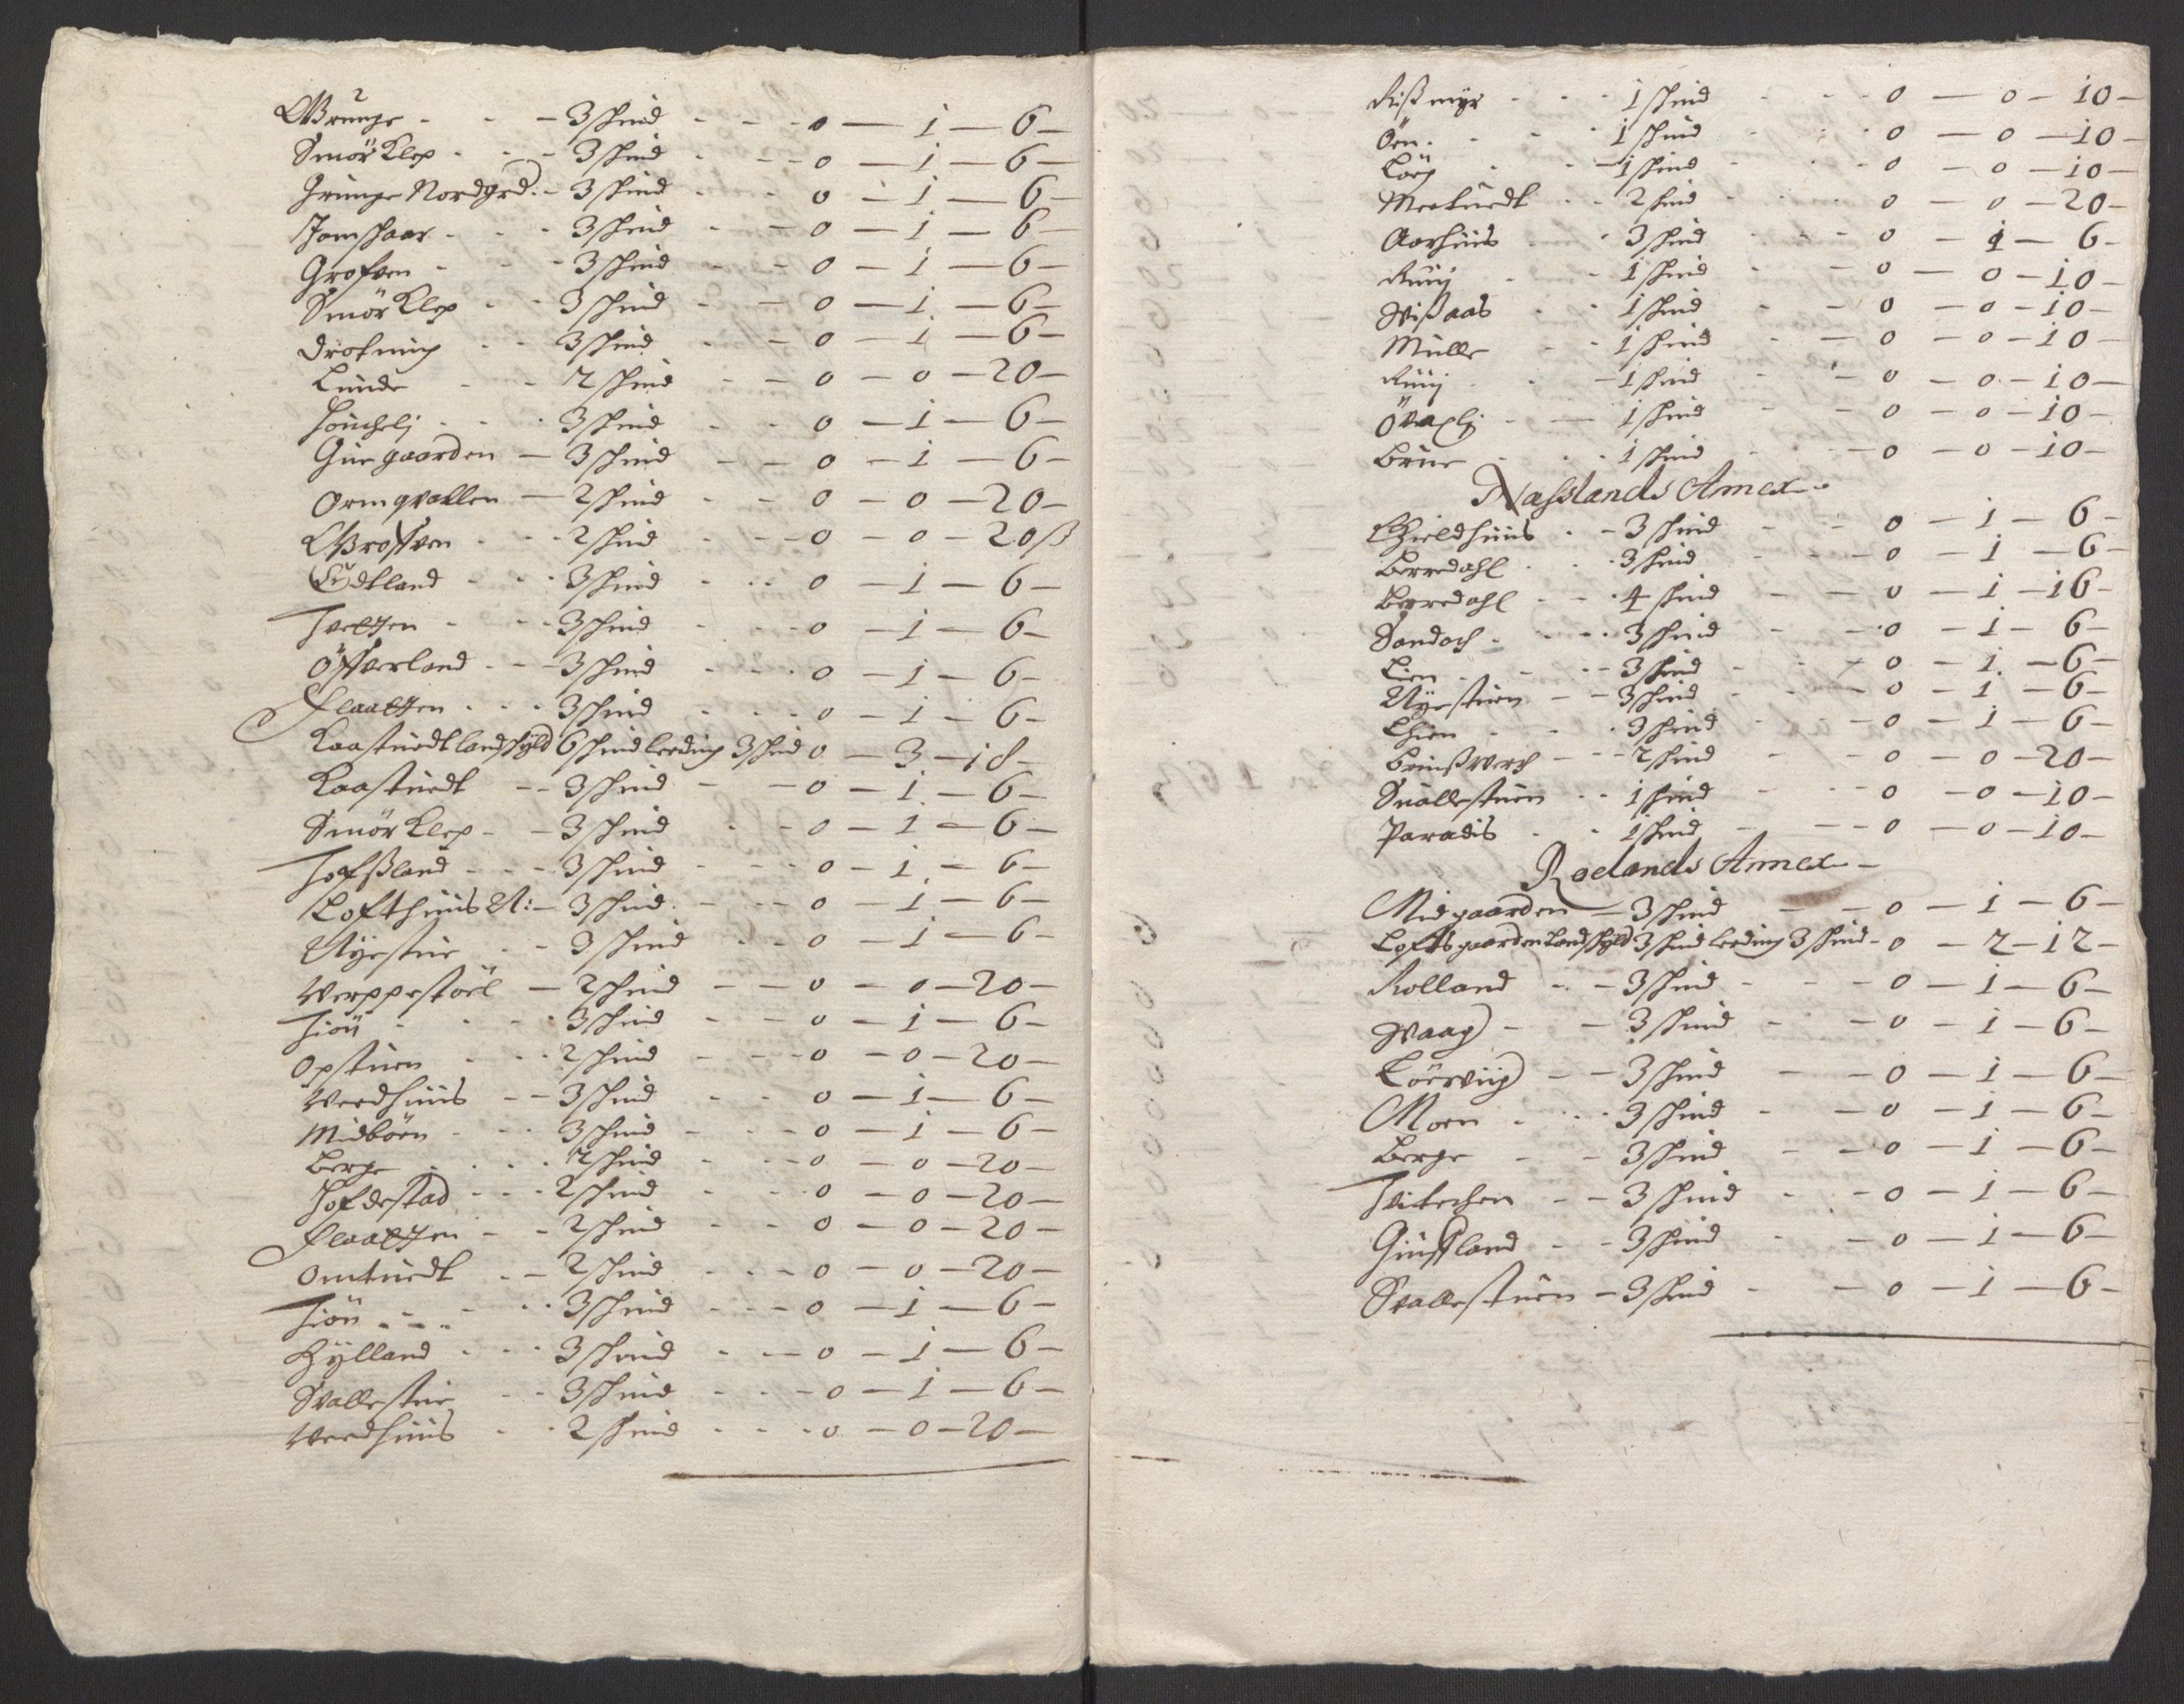 Grunge - - - 3 skind - - - 0 - 1 - 6 -
Smör Klep - - - 3 skind - - - 0 - 1 - 6 -
Grunge Nordgrd: - 3 skind - - 0 - 1 - 6 -
Jamskaar - - - 3 skind - - 0 - 1 - 6 -
Grofven - - - 3 skind - - 0 - 1 - 6 -
Smör Klep - - 3 skind - - 0 - 1 - 6 -
Drotning - - 3 skind - - 0 - 1 - 6 -
Lunde - - 2 skind - - 0 - 0 - 20 -
3 skind - - 0 - 1 - 6 -
Gue gaarden - 3 skind - - 0 - 1 - 6 -
Ormgrallen - 2 skind - - 0 - 0 - 20 -
Groffven - - - 2 skind - - - 0 - 0 - 20 ß
Edtland - - - 3 skind - - - 0 - 1 - 6 -
Tveitten - - - 3 skind - - - 0 - 1 - 6 -
Öffverland - - - 3 skind - - - 0 - 1 - 6 -
Flaatten - - - 3 skind - - - 0 - 1 - 6 -
Kaastuedt landskyld 6 skind leeding 3 skind 0 - 3 - 18 -
Kaastuedt - - 3 skind - - 0 - 1 - 6 -
Smör Klep - - 3 skind - - 0 - 1 - 6 -
Hofßland - - - 3 skind - - - 0 - 1 - 6 -
Lofthuus N: - 3 skind - - - 0 - 1 - 6 -
Nyestue - - 3 skind - - 0 - 1 - 6 -
Verppestöel - 2 skind - - 0 - 0 - 20 -
Tiön - - - 3 skind - - 0 - 1 - 6 -
Opstuen - - - 2 skind - - - 0 - 0 - 20 -
Veedhuus - - 3 skind - - 0 - 1 - 6 -
Midböen - - - 3 skind - - - 0 - 1 - 6 -
Berge - - - - 2 skind - - - 0 - 0 - 20 -
Hofdestad - - - 2 skind - - 0 - 0 - 20 -
Flaatten - - 2 skind - - 0 - 0 - 20 -
Omtuedt - - 2 skind - - - 0 - 0 - 20 -
Tiön - - - - 3 skind - - - 0 - 1 - 6 -
Hylland - - - 3 skind - - - 0 - 1 - 6 -
Svallestue - - 3 skind - - - 0 - 1 - 6 -
Veedhuus - - 2 skind - - - 0 - 0 - 20 -
Rißmyr - - - 1 skind - - - 0 - 0 - 10 -
Öen - - - 1 skind - - - 0 - 0 - 10 -
- 1 skind - - 0 - 0 - 10 -
Meetuedt - - 2 skind - - 0 - 0 - 20 -
Aarhuus - - 3 skind - - 0 - 1 - 6 -
Ruuj - - 1 skind - - 0 - 0 - 10 -
Vißaas - - 1 skind - - 0 - 0 - 10 -
Mulle - - 1 skind - - 0 - 0 - 10 -
Ruuj - - 1 skind - - 0 - 0 - 10 -
1 skind - - 0 - 0 - 10 -
Brue - - 1 skind - - 0 - 0 - 10 -
Næslands Annex -
Gieldhuus - - 3 skind - - 0 - 1 - 6 -
Berredahl - - 3 skind - - - 0 - 1 - 6 -
Berredahl - - 4 skind - - 0 - 1 - 16 -
Sandoch - - - - 3 skind - - 0 - 1 - 6 -
Lien - - - 3 skind - - - 0 - 1 - 6 -
Nyestuen - - 3 skind - - - 0 - 1 - 6 -
- - 3 skind - - - 0 - 1 - 6 -
Bruußverch - - - 2 skind - - 0 - 0 - 20 -
Suallestuen - - 1 skind - - - 0 - 0 - 10 -
Paradis - - 1 skind - - - 0 - 0 - 10 -
Roelands Annex -
Midgaarden - 3 skind - - 0 - 1 - 6 -
Loftsgaarden Landskyld 3 skind leeding 3 skind - 0 - 2 - 12 -
Rolland - - - 3 skind - - - 0 - 1 - 6 -
Vaag - - 3 skind - - 0 - 1 - 6 -
Löervig - - 3 skind - - 0 - 1 - 6 -
Moen - - - 3 skind - - 0 - 1 - 6 -
Berge - - 3 skind - - 0 - 1 - 6 -
- - 3 skind - - 0 - 1 - 6 -
- - 3 skind - - 0 - 1 - 6 -
Svallestuen - 3 skind - - 0 - 1 - 6 -